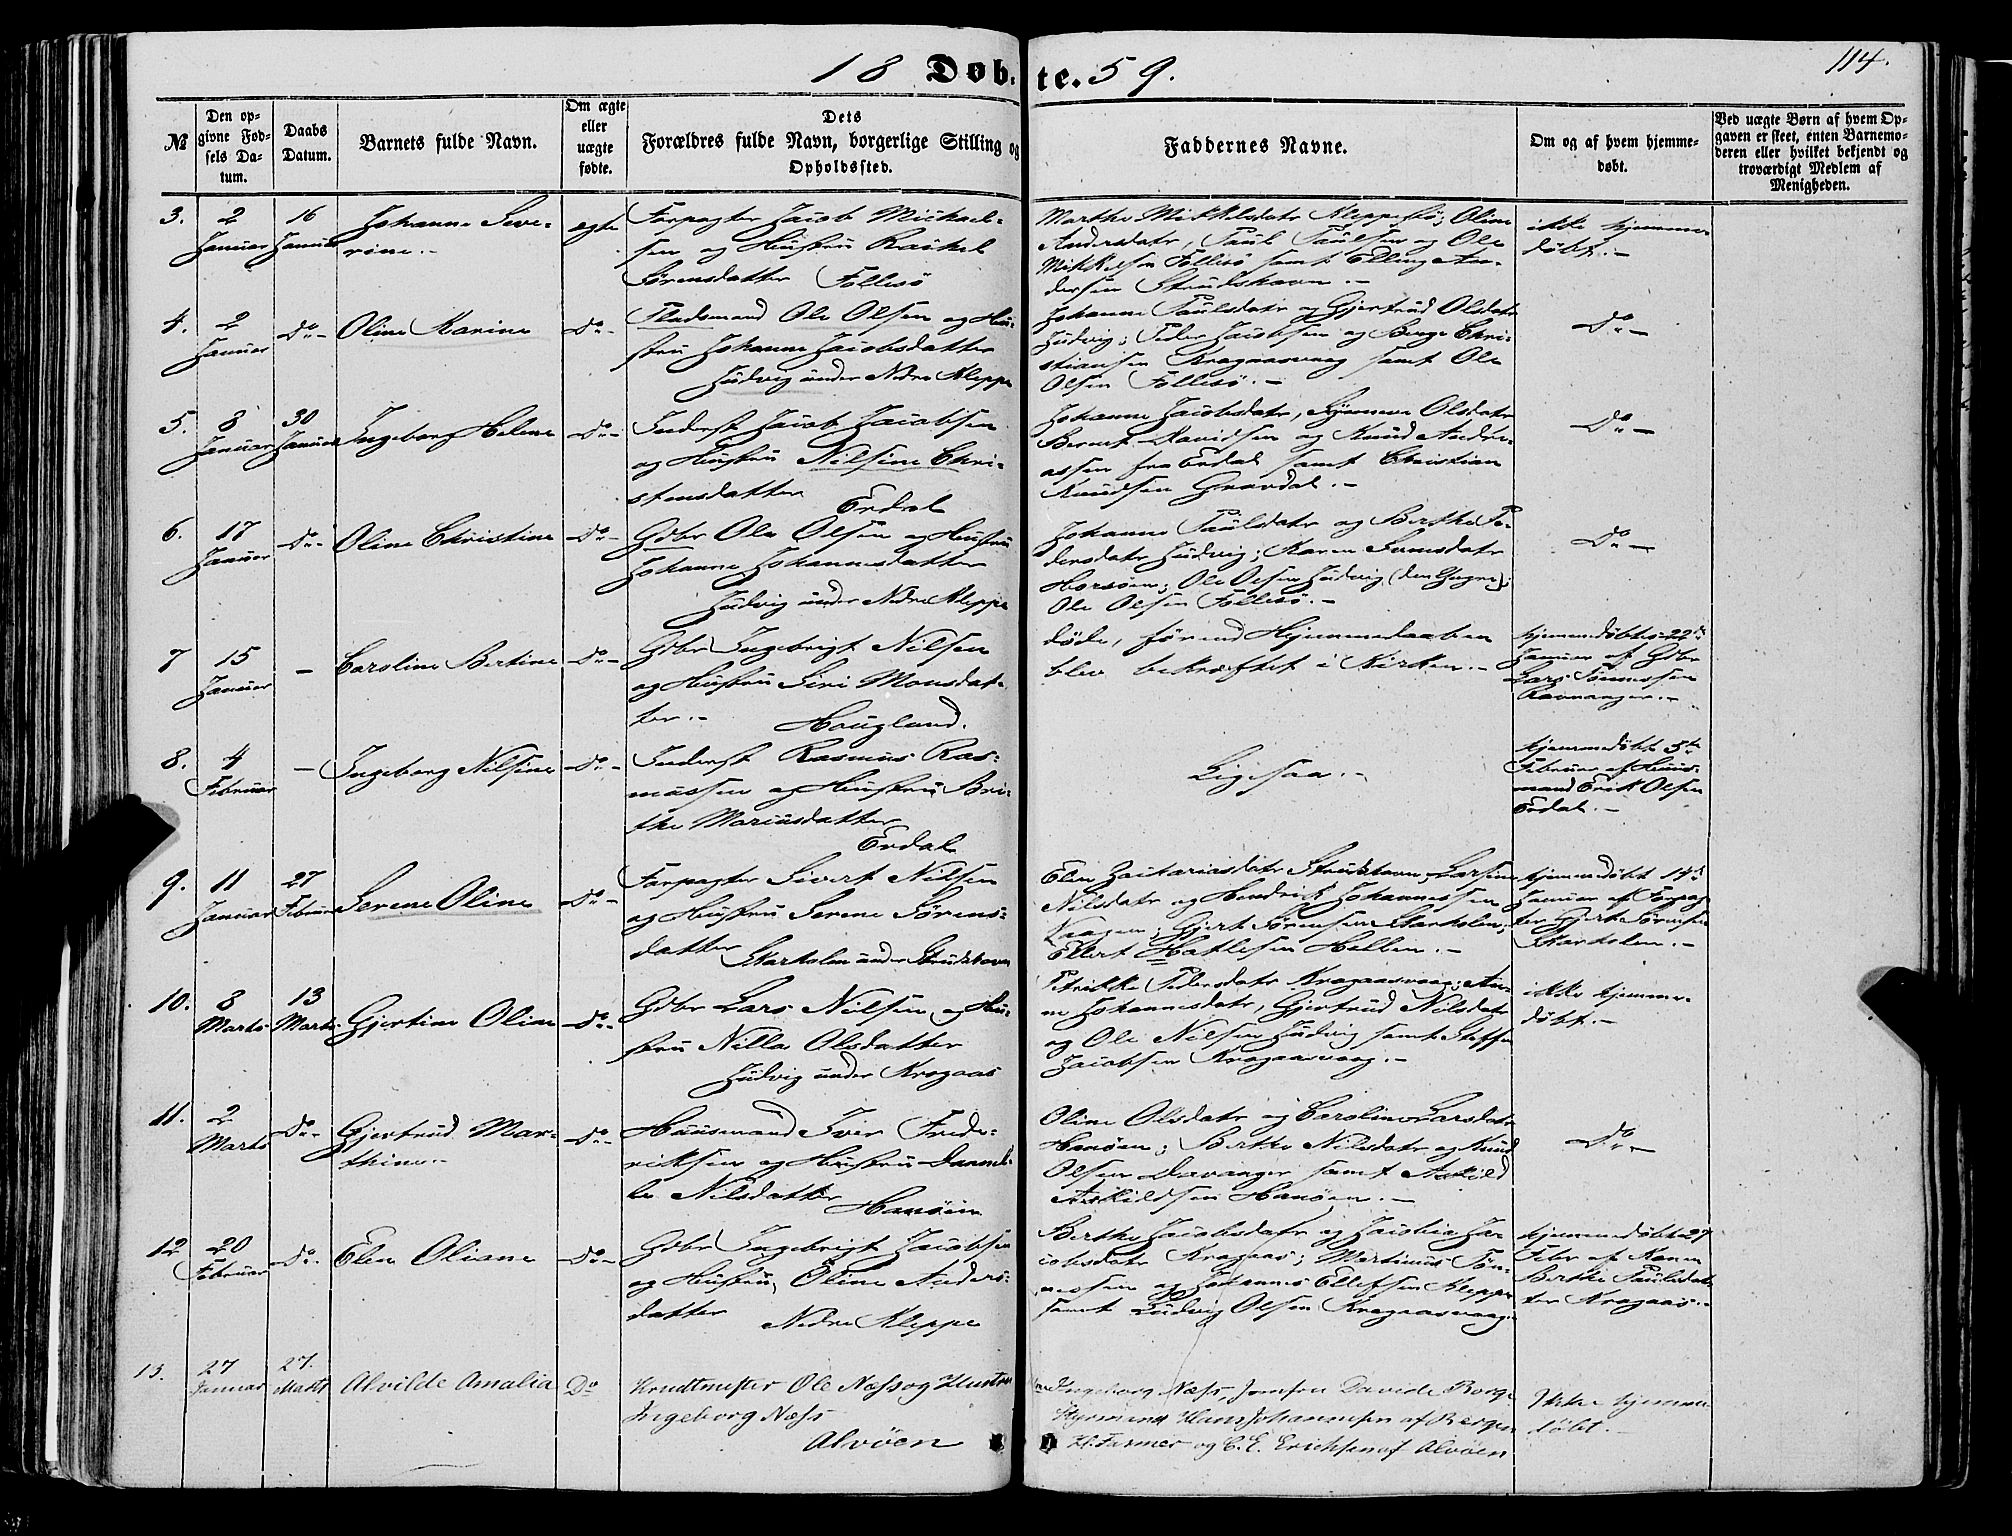 18 Døb-
te. 59.
114.
№
Den op-
givne Fød-
sels Da-
tum.
Daabs
Datum.
Barnets fulde Navn.
Om ægte
eller
uægte
fødte.
Dets
Forældres fulde Navn, borgerlige Stilling og
Opholdssted.
Faddernes Navne.
Om og af hvem hjemme-
døbt.
Ved uægte Børn af hvem Op-
gaven er skeet, enten Barnemo-
deren eller hvilket bekjendt og
troværdigt Medlem af
Menigheden.
3.
2
Januar
16
Januar
Johanne Seve-
rine.-
egte
Forpagter Jacob Michael-
sen og Hustru Rachel
Sørensdatter Follesö
Marthe Mikkelsdatr Kleppesö; Oline
Andersdatr, Paul Paulsen og Ole
Mikkelsen Follesö samt Elling An-
dersen Strudshavn.-
ikke hjemme-
döbt.-
4.
2
Januar
Do-
Oline Karine
Do-
Pladsmand Ole Olsen og Hu-
stru Johanne Jacobsdatter
Hudvig under Nedre Kleppe
Johanne Paulsdatr og Gjertrud Olsdatr
Hudvig; Peder Jacobsen og Berge Chri-
stiansen Kragaasvaag samt Ole
Olsen Follesö.-
Do-
5.
8
Januar
30
Januar
Ingeborg Helene
Do-
Inderst Jacob Jacobsen
og Hustru Nilsine Chri-
stensdatter
Erdal
Johanne Jacobsdatr, Synneve Olsdatr
Bernt Davidsen og Knud Andre-
assen fra Erdal samt Christian
Knudsen Gravdal.-
Do-
6.
17
Januar
Do-
Oline Christine
Do-
Gdbr Ole Olsen og Hustru
Johanne Johannesdatter
Hudvig under Nedre Kleppe
Johanne Paulsdatr og Berthe Pe-
dersdatr Hudvig; Karen
Horsöen; Ole Olsen Hudvig (den Yngre);
Ole Olsen Follesö.-
Do-
7
15
Januar
-
Caroline Bertine
Do-
Gdbr Ingebrigt Nilsen
og Hustru Siri Monsdat-
ter.-
Hougland.
döde, förend Hjemmedaaben
blev bekræftet i Kirken.-
hjemmedöbt 22de
Januar af Gdbr
Lars Tönnessen
Ravnanger.-
8.
4
Februar
-
Ingeborg Nilsine
Do-
Inderst Rasmus Ras-
mussen og Hustru Bri-
the Mariusdatter
Erdal
Ligesaa.-
hjemmedöbt 5te
Februar af Huus-
mand Erik Olsen
Erdal.-
9.
11
Januar
27
Februar
Serene Oline
Do-
Forpagter Sivert Nilsen
og Hustru Serene Sörens-
datter
Skarholm under Strudshavn
Elen Zachariasdatr Strudshavn;
Nilsdatr og Hendrik Johannessen
; Gjert Sörensen Skarholm;
Ellert Hatlesen Hellen.-
hjemmedöbt 14de
Januar af Forpag-
ter Gjert Sörensen
Skarholm.-
10.
8
Marts
13
Marts
Gjertine Oline
Do-
Gdbr Lars Nilsen og Hu-
stru Nilla Olsdatter
Hudvig under Kragaas
Petrikke Pedersdatr Kragaasvaag; An-
ne Johannesdatr, Gjertrud Nilsdatr
og Ole Nilsen Hudvig samt Steffen
Jacobsen Kragaasvaag.-
ikke hjemme-
döbt.-
11.
2
Marts
Do-
Gjertrud Mar-
thine.-
Do-
Huusmand Iver Frede-
riksen og Hustru
Nilsdatter
Hanöen
Oline Olsdatr og Caroline Larsdatr
Hanöen; Berthe Nilsdatr og Knud
Olsen Davanger samt Askild
Askildsen Hanöen.-
Do-
12
20
Februar
Do-
Elen Oliane
Do-
Gdbr Ingebrigt Jacobsen
og Hustru Oline Anders-
datter
Nedre Kleppe
Berthe Jacobsdatr og Jacobia Ja-
cobsdatr Kragaas; Martinus Tön-
nessen og Johannes Ellefsen Kleppe
samt Ludvig Olsen Kragaasvaag.
hjemmedöbt 27
Febr af Konen
Berthe Paulsdat-
ter Kragaas.-
13.
27
Januar
27.
Marts
Alvilde Amalia
Do
Krudtmester Ole Næss og Hustru
Ingeborg Næss
Alvöen
Ingeborg Næss, Jomfru Davida Borge
Styrmand Hans Johannesen af Bergen
H. Farmer og C. E. Erichsen af Alvöen
Ikke hjemme
döbt.-